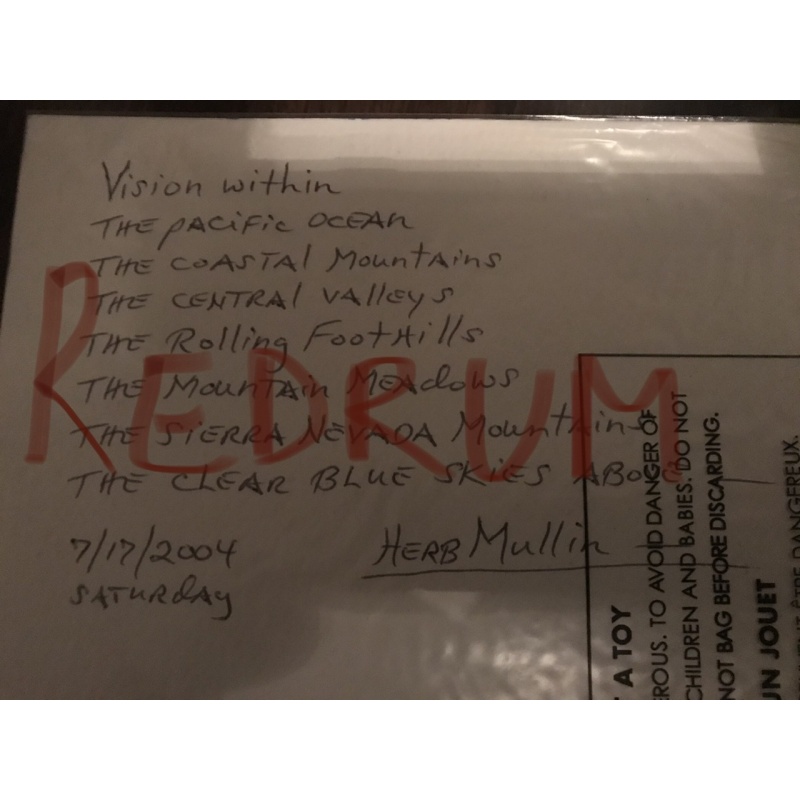 Vision within
THE PACIFIC OCEAN
THE COASTAL Mountains
THE CENTRAL VAlleys
THE Rolling FootHills
THE MOUNTAIN MEAdows
THE SIERRA NEVADA Mountains
THE CLEAR BLUE SKIES ABOVE
7/17/2004
SATURDAY
HERB Mullin
REDRUM
A TOY
TO AVOID DANGER OF
CHILDREN AND BABIES. DO NOT
NOT BAG BEFORE DISCARDING.
UN JOUET
ÊTRE DANGEREUX.